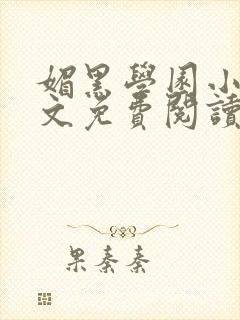 媚黑學園小
文免費閱讀
果秦秦